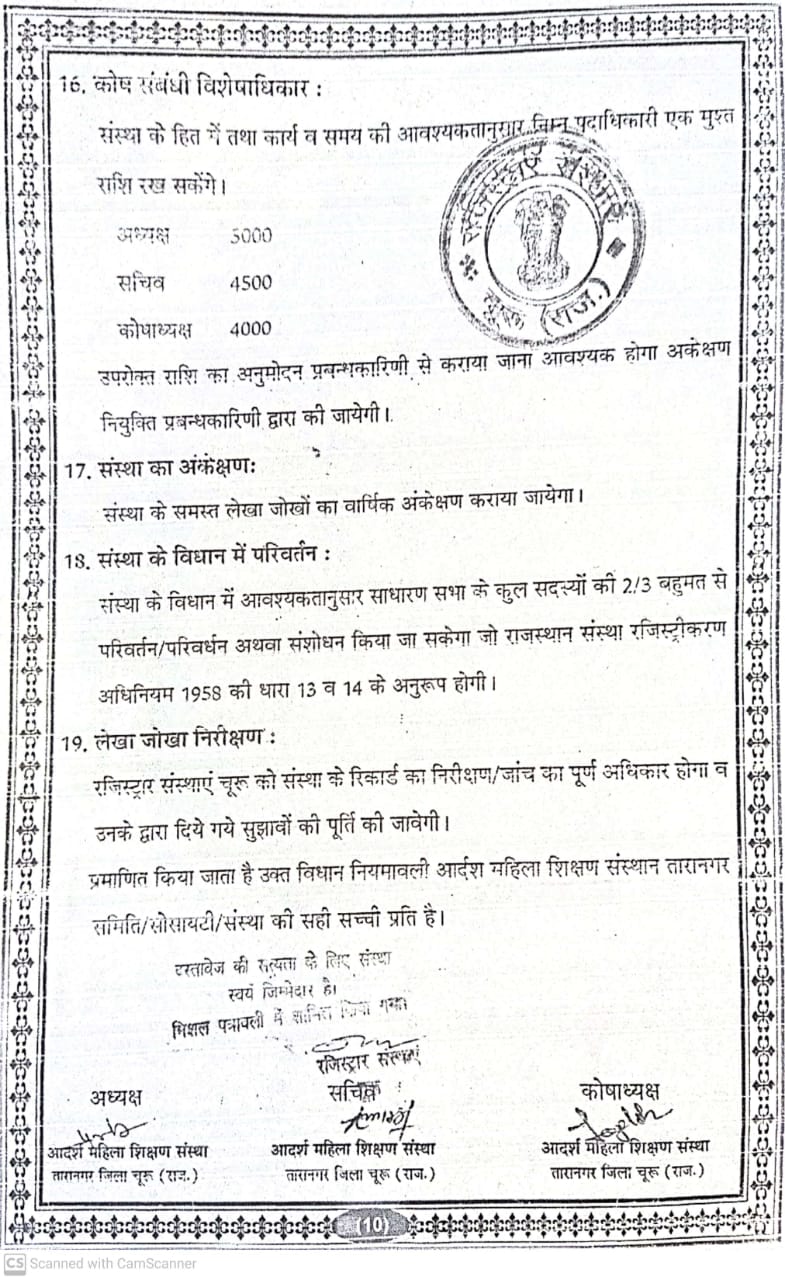 16. कोष संबंधी विशेषाधिकार :
संस्था के हित में तथा कार्य व समय की आवश्यकतानुसार निम्न पदाधिकारी एक मुश्त
राशि रख सकेंगे।
रजिस्ट्रार संस्थाएं
चूरू (राज.)
अध्यक्ष 5000
सचिव 4500
कोषाध्यक्ष 4000
उपरोक्त राशि का अनुमोदन प्रबन्धकारिणी से कराया जाना आवश्यक होगा अकेक्षण
नियुक्ति प्रबन्धकारिणी द्वारा की जायेगी।
17. संस्था का अंकेक्षण:
संस्था के समस्त लेखा जोखों का वार्षिक अंकेक्षण कराया जायेगा।
18. संस्था के विधान में परिवर्तन :
संस्था के विधान में आवश्यकतानुसार साधारण सभा के कुल सदस्यों की 2/3 बहुमत से
परिवर्तन/परिवर्धन अथवा संशोधन किया जा सकेगा जो राजस्थान संस्था रजिस्ट्रीकरण
अधिनियम 1958 की धारा 13 व 14 के अनुरूप होगी।
19. लेखा जोखा निरीक्षण :
रजिस्ट्रार संस्थाएं चूरू को संस्था के रिकार्ड का निरीक्षण/जांच का पूर्ण अधिकार होगा व
उनके द्वारा दिये गये सुझावों की पूर्ति की जावेगी।
प्रमाणित किया जाता है उक्त विधान नियमावली आर्दश महिला शिक्षण संस्थान तारानगर
समिति/सोसायटी/संस्था की सही सच्ची प्रति है।
दस्तावेज की सत्यता के लिए संस्था
स्वयं जिम्मेदार है।
मिशल पत्रावली में शामिल किया गया
रजिस्ट्रार संस्थाएं
अध्यक्ष सचिव कोषाध्यक्ष
आदर्श महिला शिक्षण संस्था आदर्श महिला शिक्षण संस्था आदर्श महिला शिक्षण संस्था
तारानगर जिला चूरू (राज.) तारानगर जिला चूरू (राज.) तारानगर जिला चूरू (राज.)
(10)
CS Scanned with CamScanner